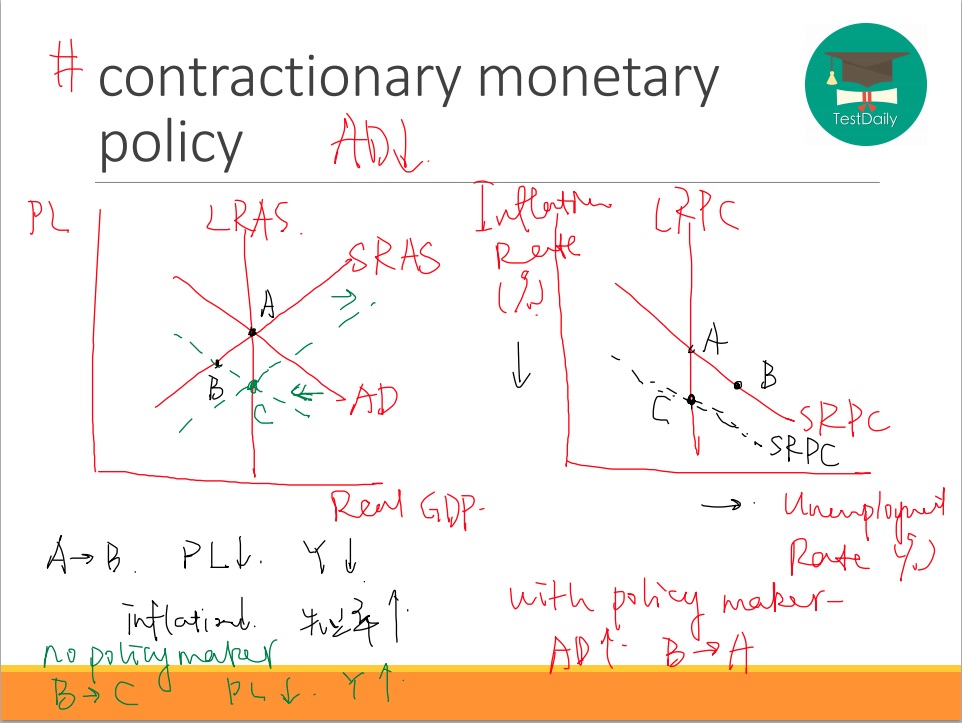 # contractionary monetary
policy AD↓.
TestDaily
PL
LRAS.
SRAS
A
B
C
AD
Real GDP
Inflation
Rate
(%)
LRPC
A
B
C
SRPC
SRPC
Unemployment
Rate (%)
A→B. PL↓. Y↓.
inflation↓. 失业率↑.
no policy maker
B→C PL↓. Y↑.
with policy maker
AD↑. B→A